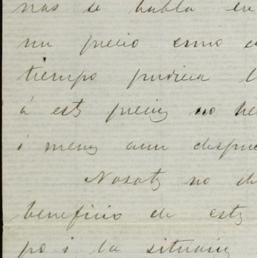 nas se habla en
un precio como e
tiempo pudiera l
á este precio no he
i menos aun despue
Nosots no d
beneficio de esty
po i la situacio